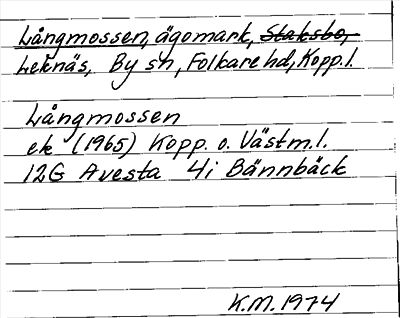 Långmossen, ägomark, Staksbo,
Leknäs, By sn, Folkare hd, Kopp.l.
Långmossen
ek (1965) Kopp. o. Västm.l.
12G Avesta 4i Bännbäck
K.M. 1974